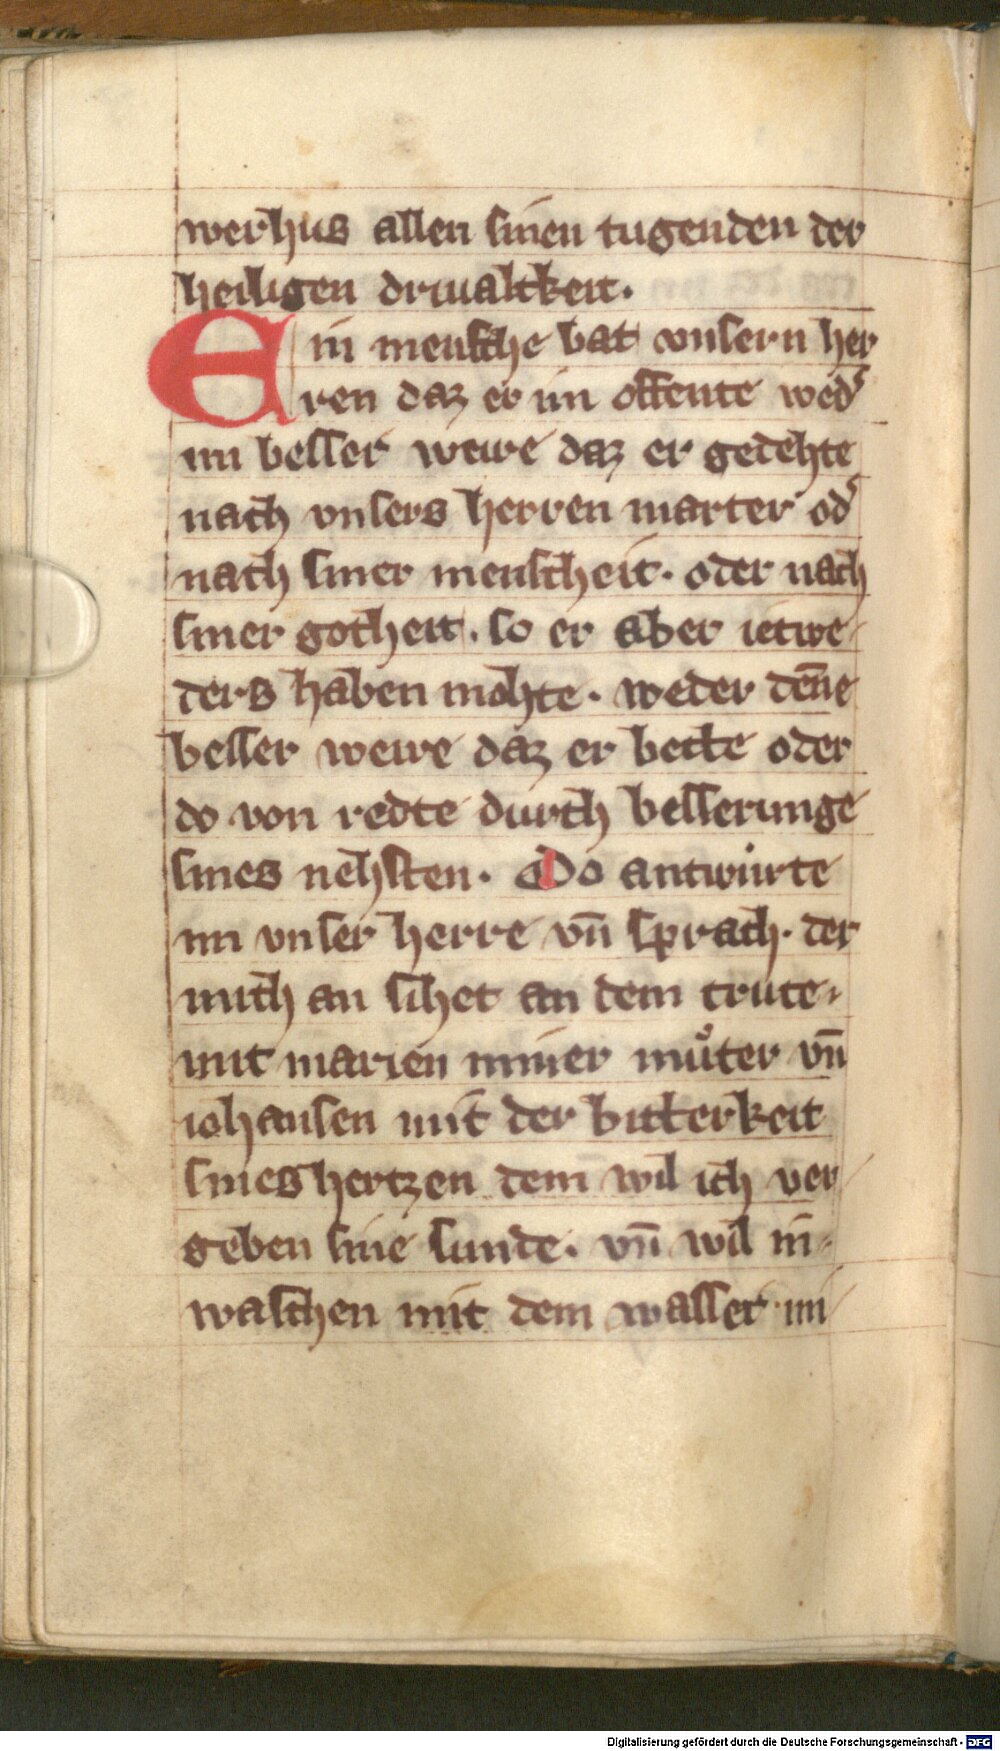 werhus allen sinen tugenden der
heiligen driualtkeit.
Ein mensche bat vnsern her
ren daz er im offente wedˀ
im besser were daz er gedehte
nach vnsers herren marter odˀ
nach siner menscheit. oder nach
siner gotheit. so er aber ietwe-
ders haben mohte. weder dēne
besser were daz er bette oder
do von redte durch besserunge
sines nehsten. Do antwurte
im vnser herre vn̄ sprach. der
mich an sihet an dem crúce.
mit marien miner můter vn̄
iohansen mit der bitterkeit
sines hertzen dem wil ich ver
geben sine sunde. vn̄ wil in
waschen mit dem wasser mi
Digitalisierung gefördert durch die Deutsche Forschungsgemeinschaft - DFG